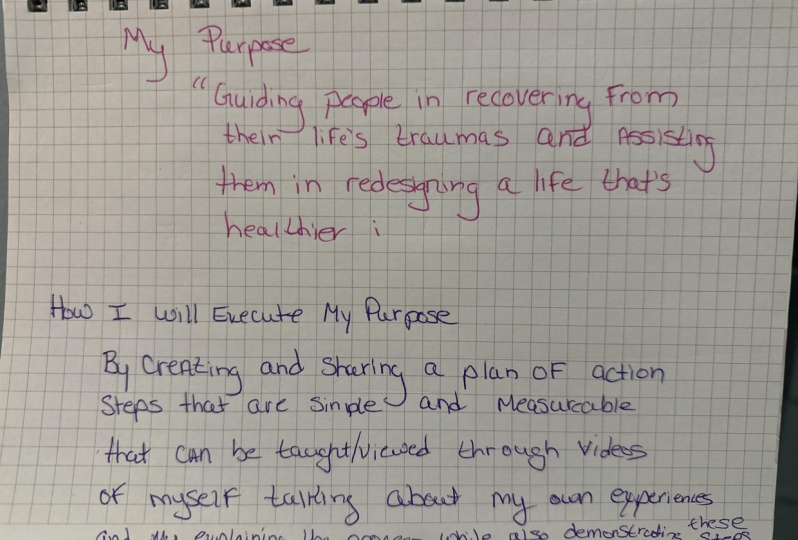 My Purpose
"Guiding people in recovering from
their life's traumas and Assisting
them in redesigning a life that's
healthier i
How I Will Execute My Purpose
By Creating and Sharing a plan OF action
Steps that are simple and Measureable
that can be taught/viewed through videos
of myself talking about my own experiences
these
and explaining the while also demonstrating steps